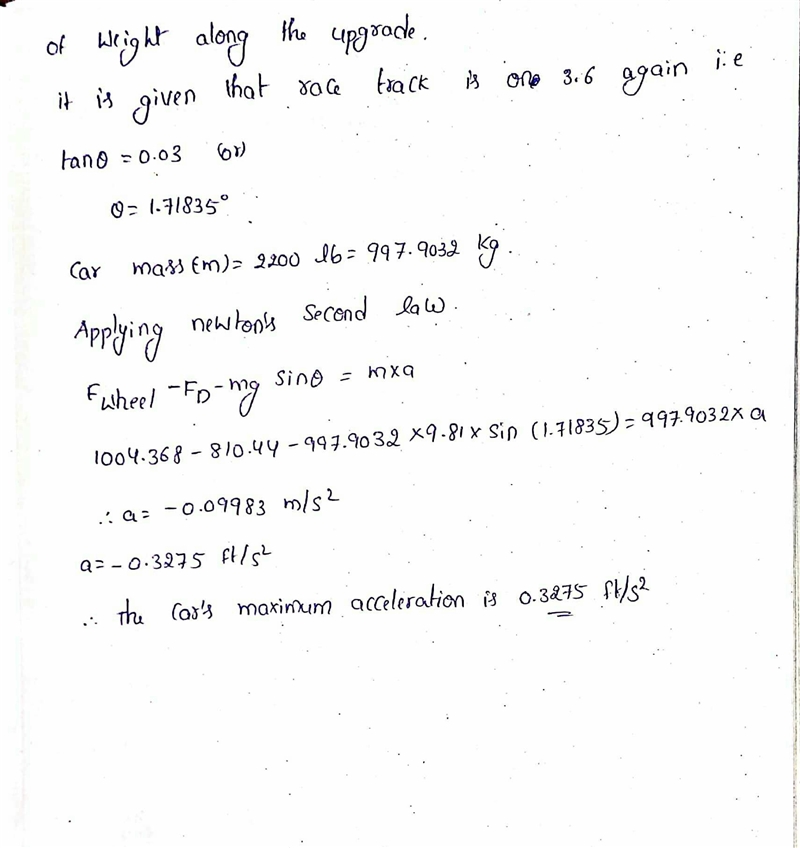 of weight along the upgrade.
it is given that race track is one 3.6 again i.e
tanθ = 0.03 (or)
θ = 1.71835°
Car mass (m) = 2200 lb = 997.9032 kg.
Applying newton's second law.
Fwheel - FD - mg sinθ = m×a
1004.368 - 810.44 - 997.9032 × 9.81 × sin (1.71835) = 997.9032 × a
∴ a = -0.09983 m/s²
a = -0.3275 ft/s²
∴ the car's maximum acceleration is 0.3275 ft/s²